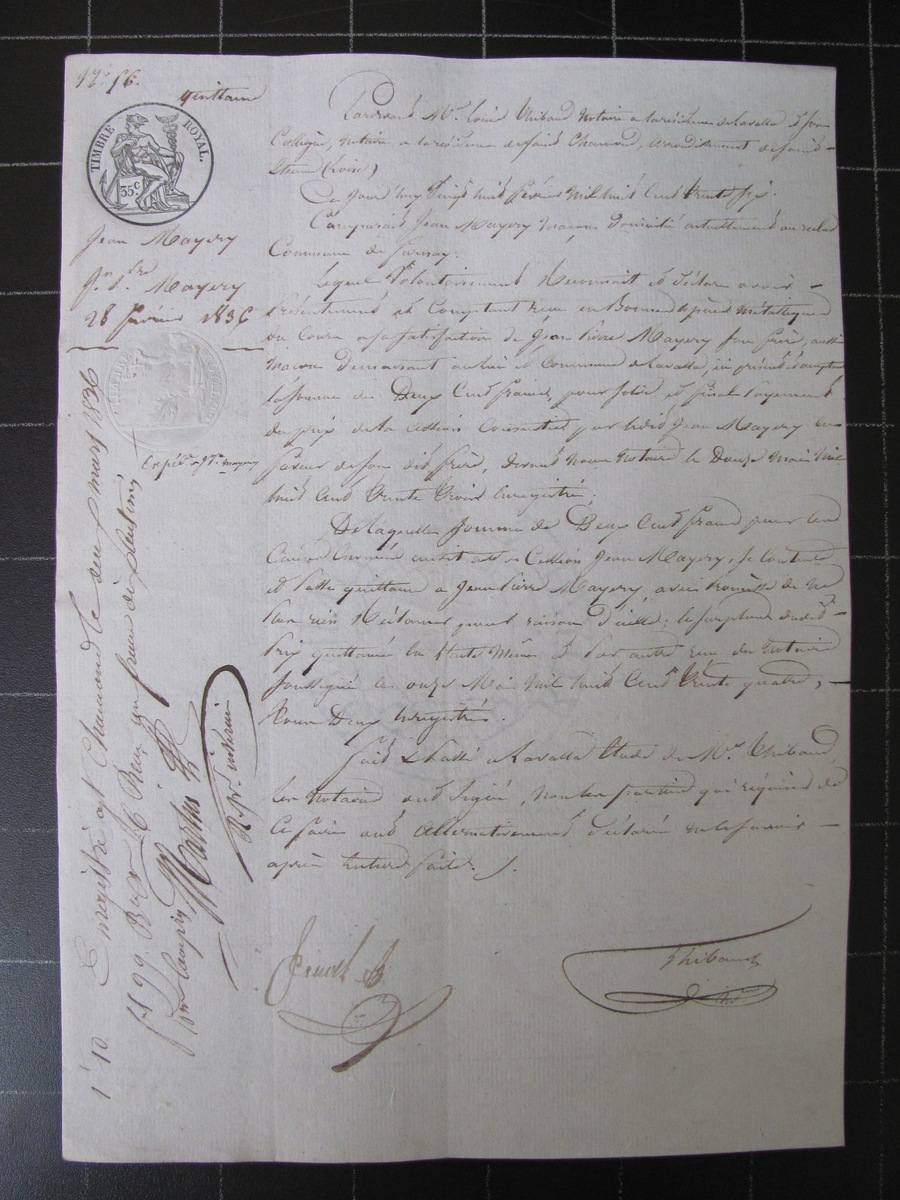 quittance
TIMBRE ROYAL.
35 c
Jean Mayery
Jn. Pre. Mayery
28 février 1836
Pardevant Me. Louis Thibaud Notaire a la résidence de Lavalla & son
Collègue, Notaire a la résidence de saint Chamond, arrondissement de saint
Etienne (Loire)
Ce jourd'huy Vingt huit février Mil huit Cent trente six
Comparait Jean Mayery Maçon Domicilié actuellement au
Commune de
Lequel Volontairement Reconnait et déclare avoir
Présentement et Comptant reçu en Bonnes Espèces Métalliques
du Cours a sa satisfaction de Jean Pierre Mayery son frère, aussi
Macon Demeurant au Commune de Lavalla, ici présent & acceptant
la somme de Deux Cent francs, pour solde et final payement
du prix de la Cession Consentie par ledit Jean Mayery en
faveur de son dit frère, devant nous Notaire le Douze Mai Mil
huit Cent Trente Trois Enregistré.
De laquelle somme de Deux Cent francs pour les
Causes Jean Mayery, se Contente
et Passe quittance a Jean Pierre Mayery avec Promesse de ne
Plus rien Réclamer pour raison d'icelle; le surplus dudit
Prix quittancé & Par autre reçu du Notaire
soussigné le onze Mil huit Cent Trente quatre,
Tous Deux Enregistrés.
Fait & Passé a Lavalla Etude de Me. Thibaud
les Notaires ont signé, non les parties qui réquises de
Ce faire ont alternativement déclaré ne le savoir
après lecture faite.
Thibaud
Enregistré a St Chamond le deux mars 1836
fo 99 Reçu un franc dix centimes
Martin
1 f 10